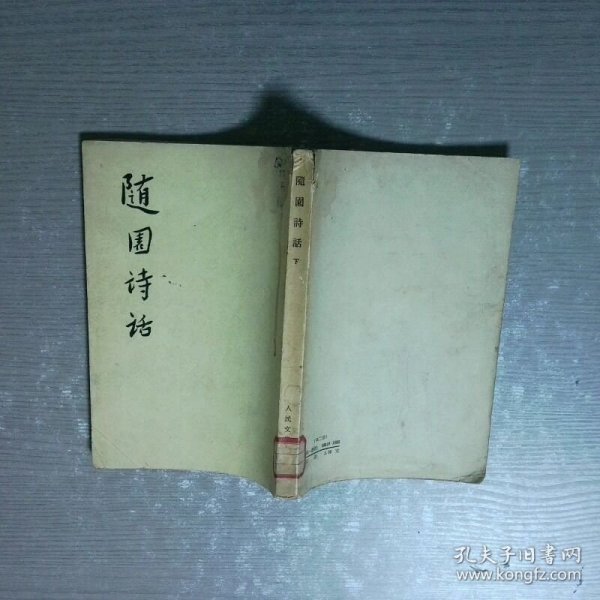 随园诗话
隨園詩話 下
人民文
(全二册)
孔夫子旧书网
www.kongfz.com